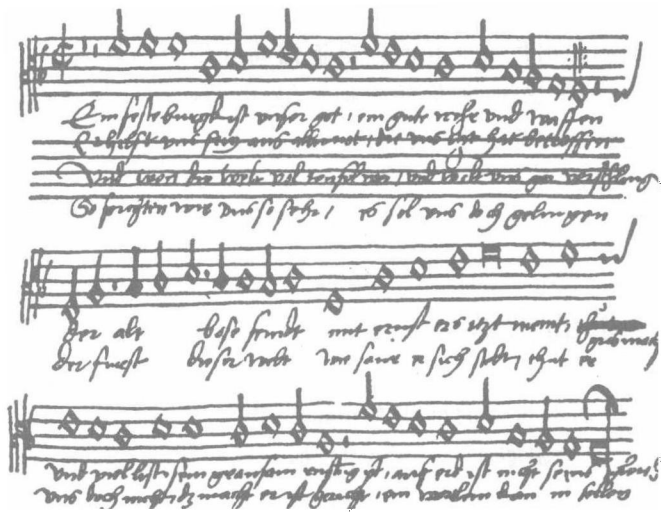 Ein feste burgk ist unser got, ein gute wehr und waffen
Er hilfft uns frey aus aller not, die uns itzt hat betroffen
Und wen die welt vol teufel wer, und wolt uns gar verschling
So forchten wir uns so sehr, es sol uns doch gelingen
der alt bose feindt mit ernst ers itzt meint,
der furst dieser welt wie saur er sich stelt, thut er
und viel list sein grausam rustung ist, auf erd ist nicht seins
uns doch nicht, dz macht er ist gericht, ein wortlein kan in fellen